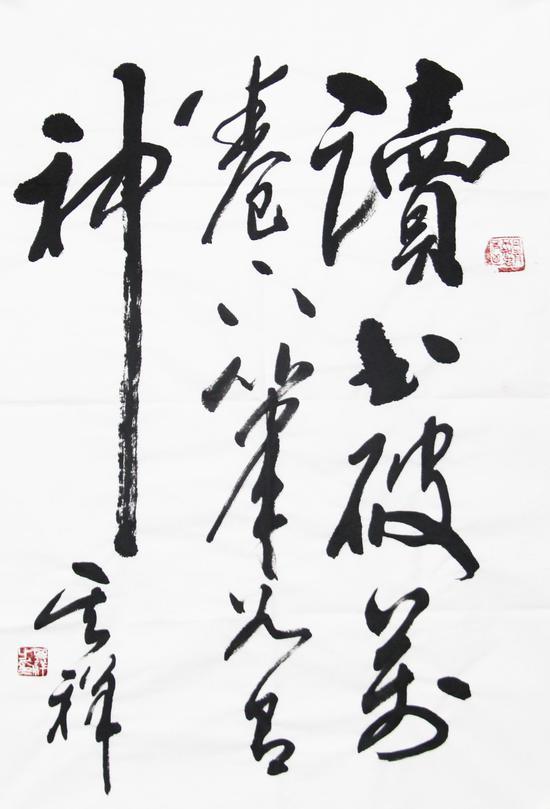 讀书破萬
卷下筆如有
神
云祥